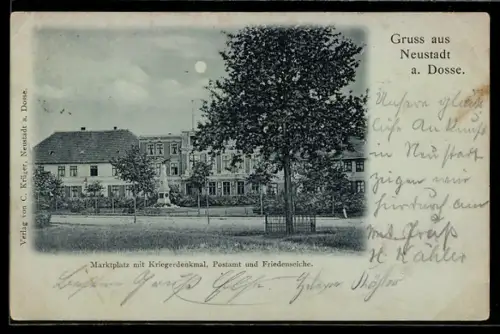 Gruss aus
Neustadt
a. Dosse.
Verlag von C. Krüger, Neustadt a. Dosse.
Unsere glück
liche Ankunft
in Neustadt
zeigen wir
hierdurch an
mit Gruß
H Köhler
Marktplatz mit Kriegerdenkmal, Postamt und Friedenseiche.
Besten Gruß Köhler